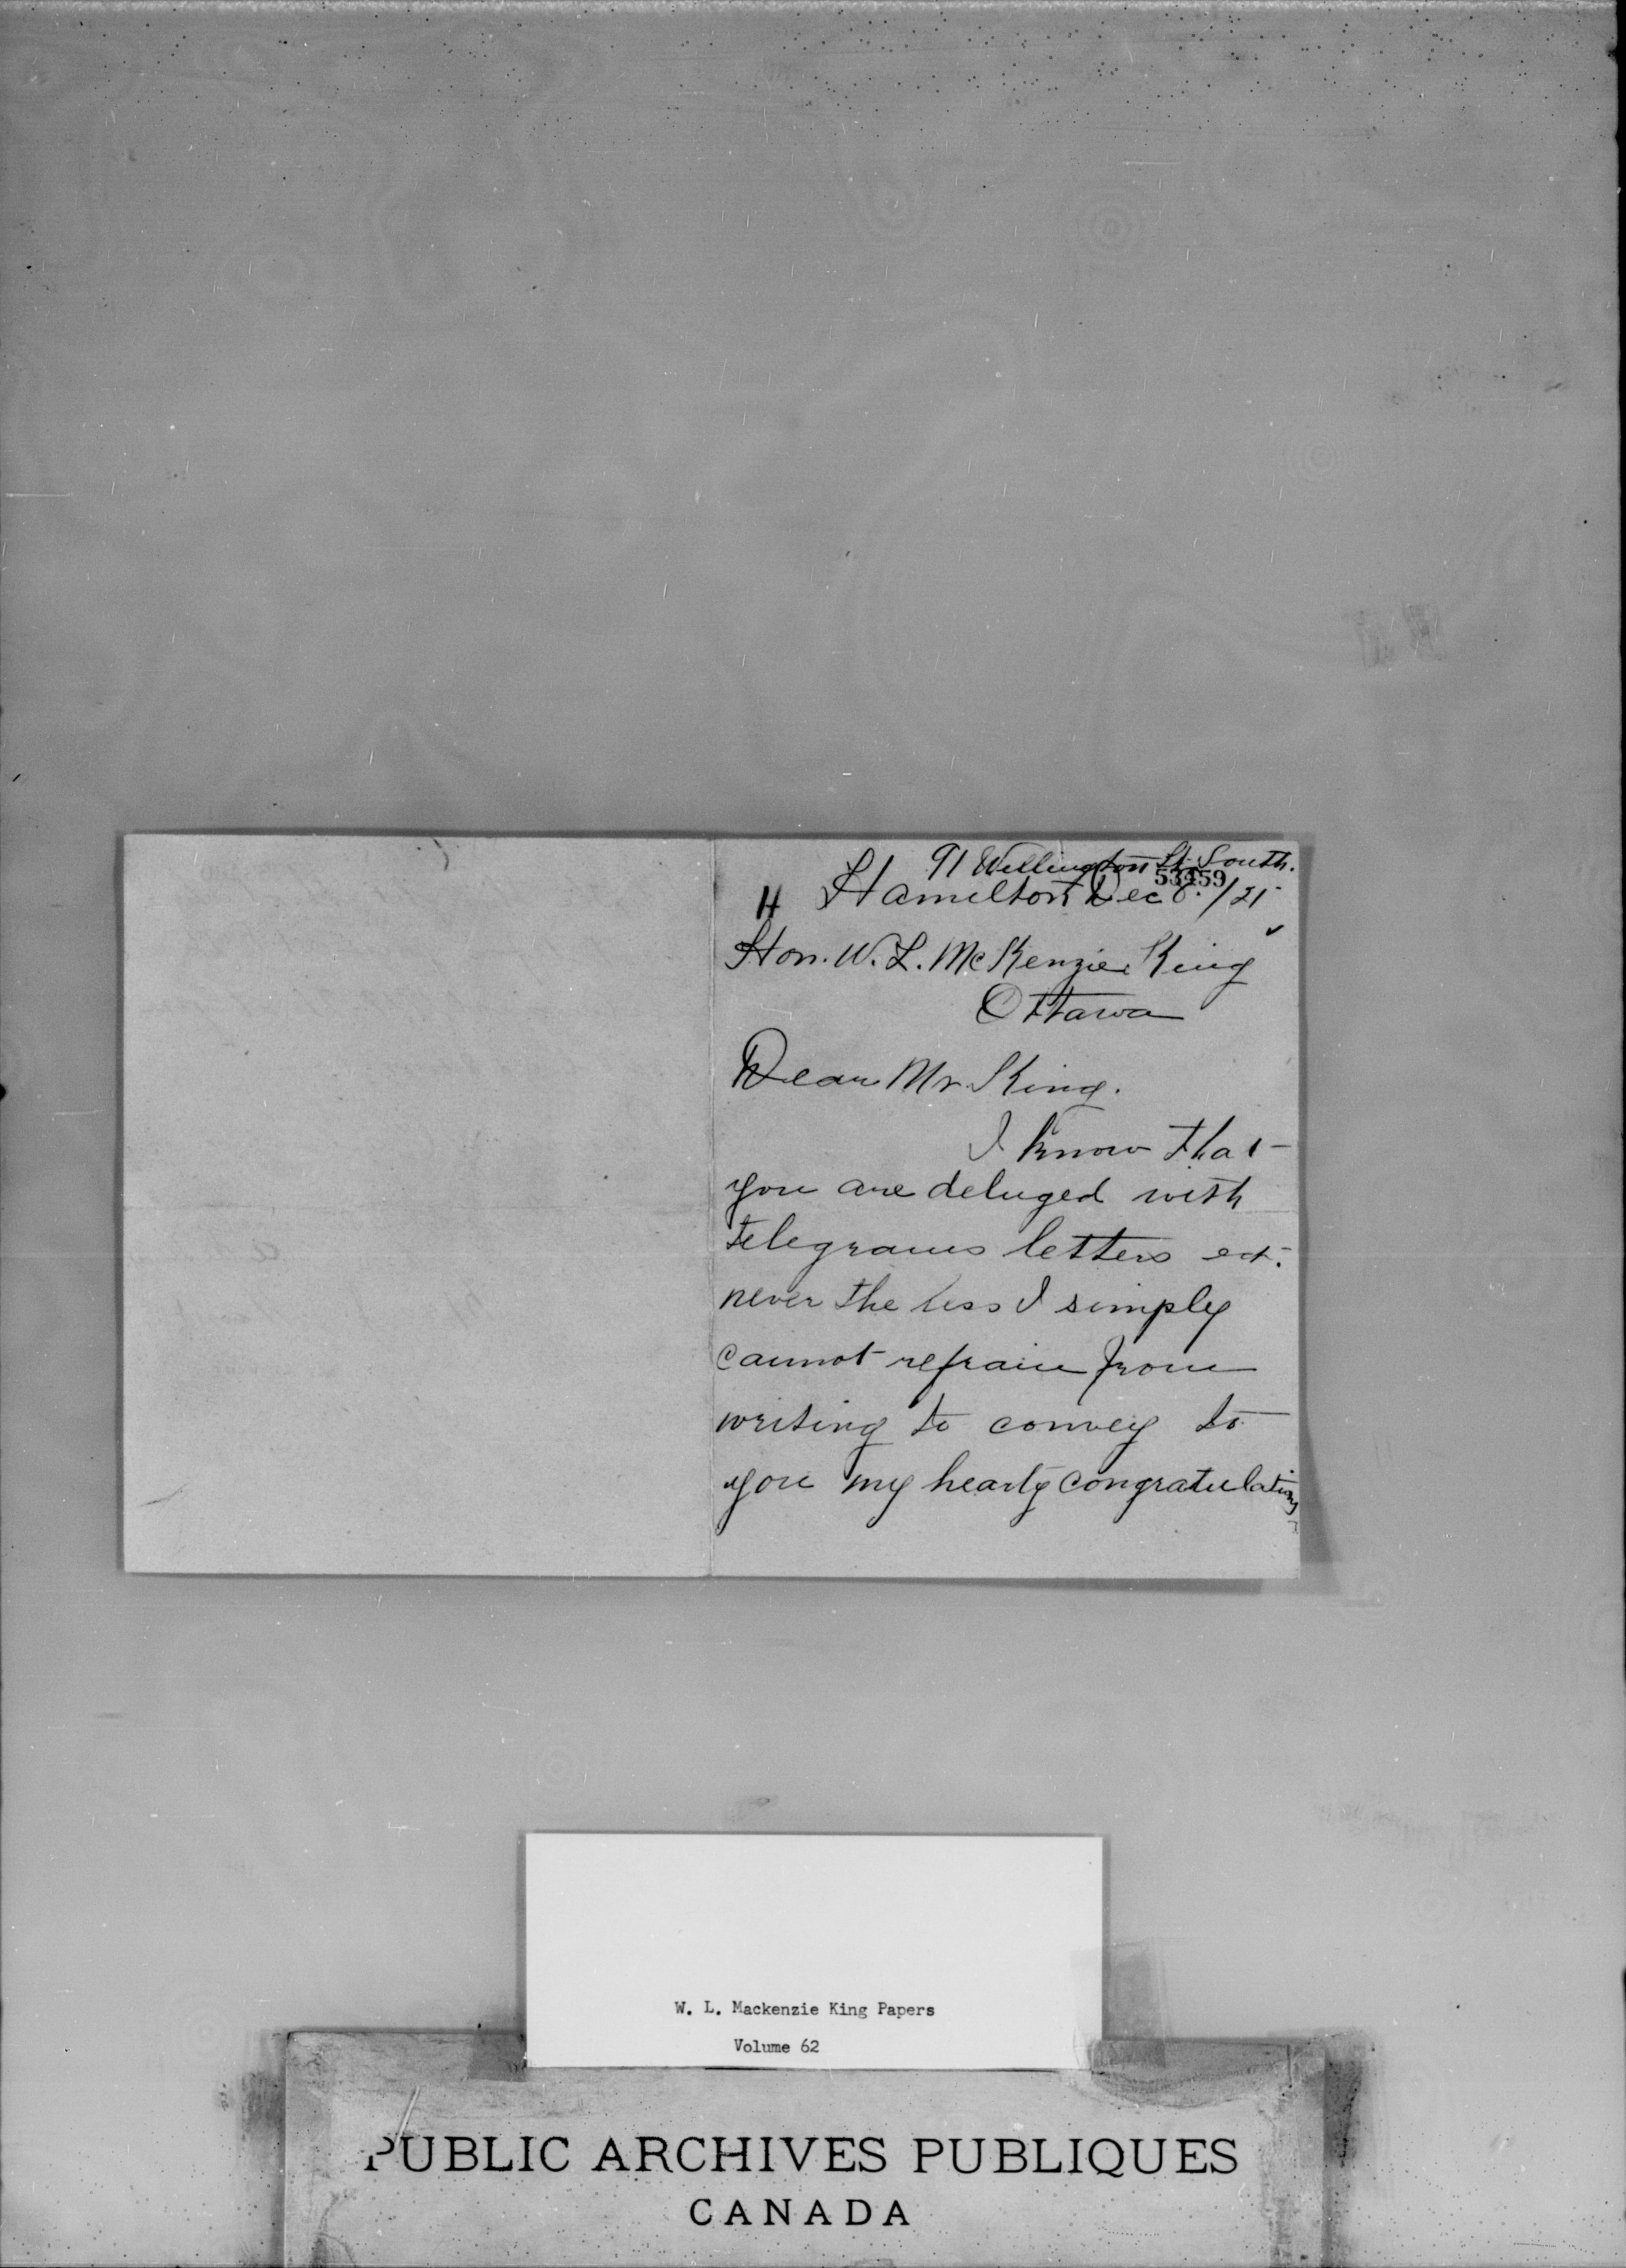 91 Wellington St. South.
53459
H Hamilton Dec 8. /21
Hon. W. L. McKenzie King
Ottawa
Dear Mr. King.
I know that
you are deluged with
telegrams letters ect.
never the less I simply
cannot refrain from
writing to convey to
you my hearty congratulations
W. L. Mackenzie King Papers
Volume 62
PUBLIC ARCHIVES PUBLIQUES
CANADA